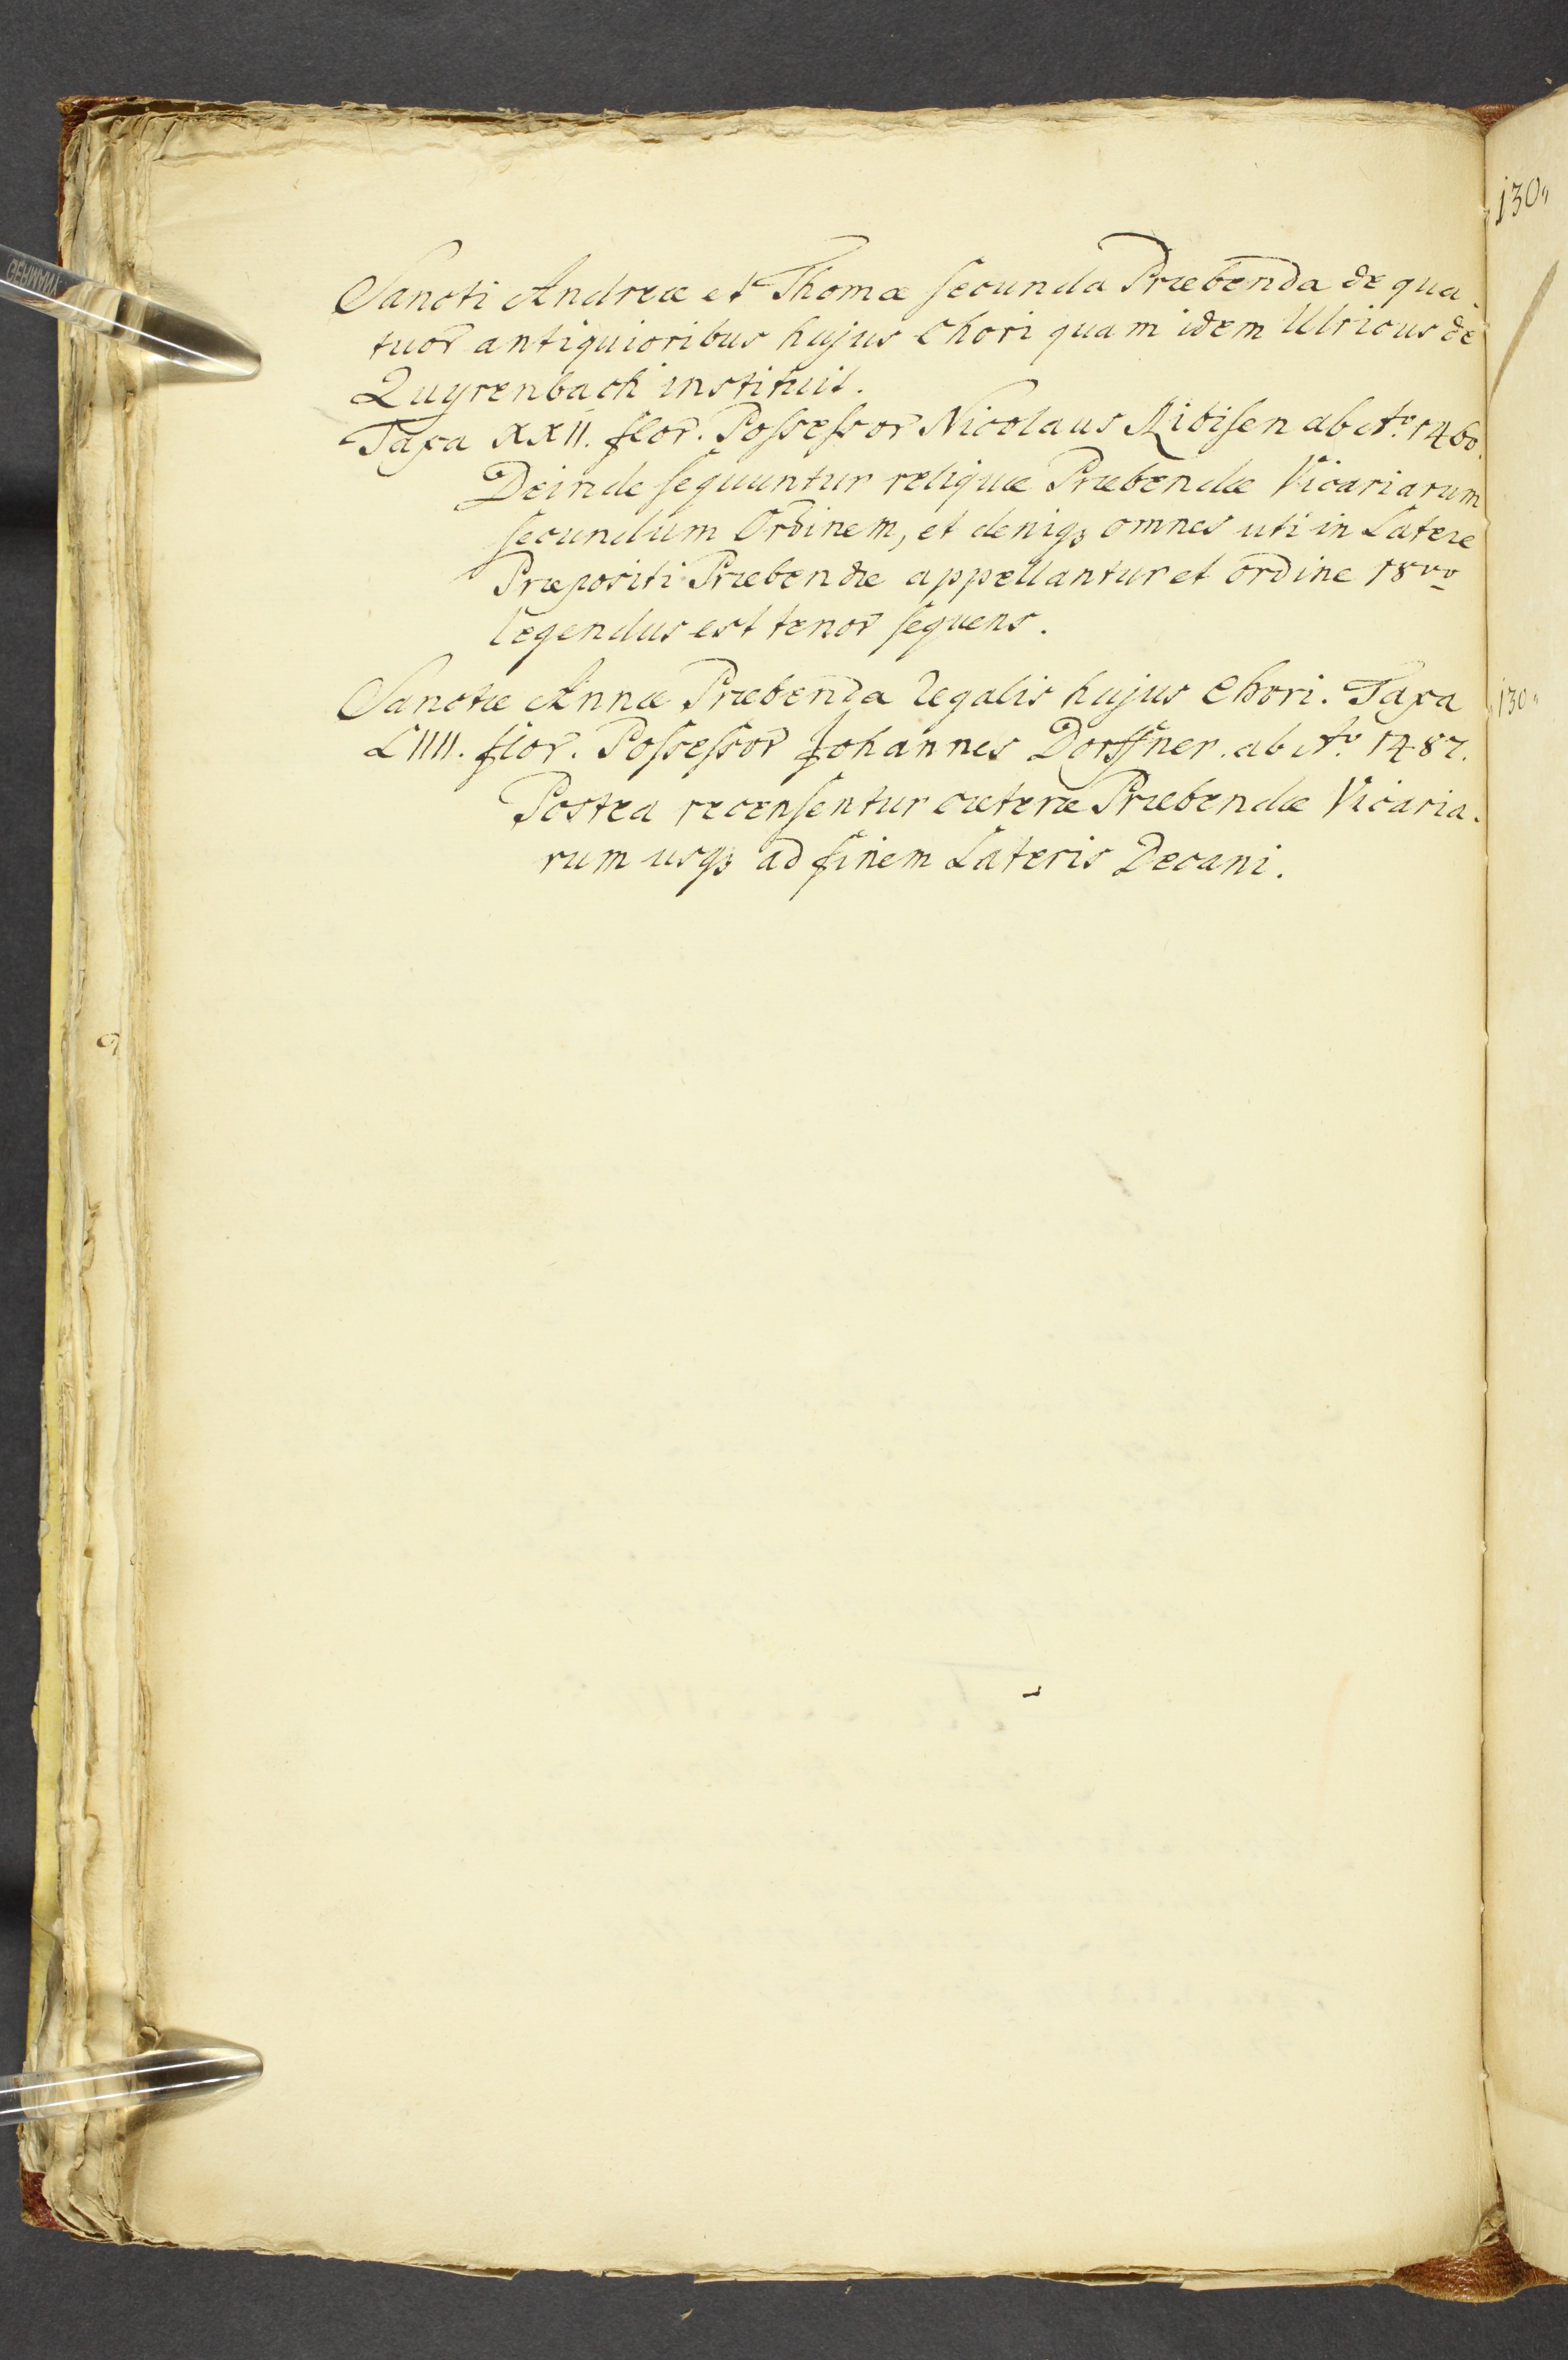 Sancti Andreæ et Thomæ ſecunda Præbenda de qua-
tuor antiquioribus hujus Chori quam idem Ulricus de
Quyrenbach instituit.
Taxa XXII. flor. Poſseſsor Nicolaus Ribiſen ab Aº. 1460.
Deinde ſequuntur reliquæ Præbendæ Vicariarum
ſecundum Ordinem, et deniqꝫ omnes uti in Latere
Præpositi Præbendæ appellantur et ordine 18vo
legendus est tenor ſequens.
Sanctæ Annæ Præbenda legalis hujus Chori. Taxa
LIIII. flor. Poſseſsor Johannes Dorffner. ab Aº. 1487.
Postea recenſentur cæteræ Præbendæ Vicaria-
rum usqꝫ ad finem Lateris Decani.
130
130
GERMANY